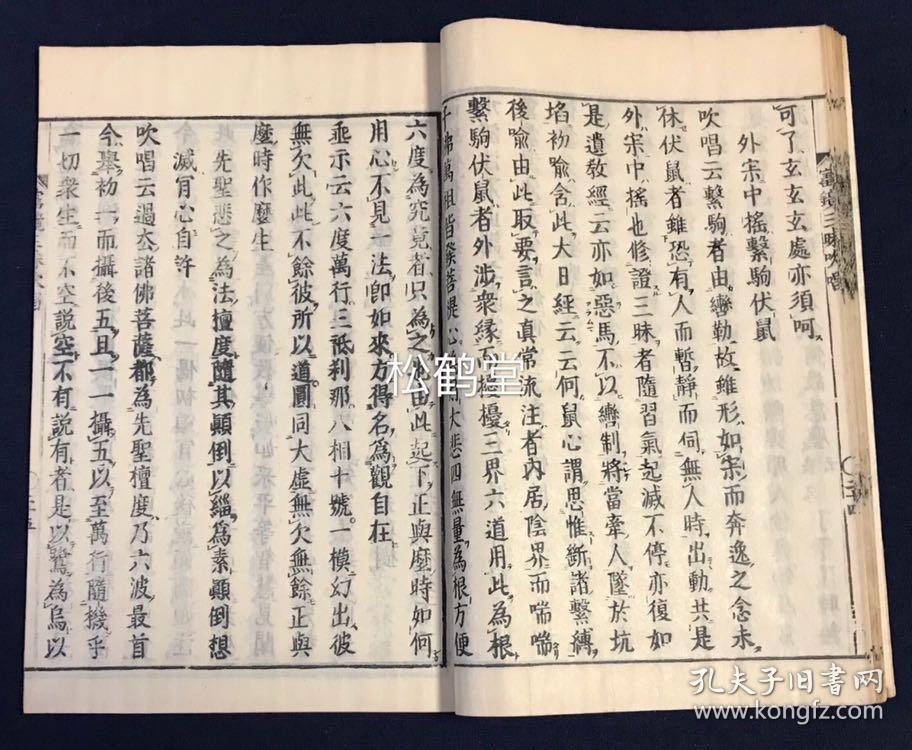 可了玄玄玄處亦須呵
外宗中搖繫駒伏鼠
吹唱云繫駒者由轡勒故雖形如宗而奔逸之念未
休伏鼠者雖恐有人而暫靜而伺無人時出動共是
外宗中搖也修證三昧者隨習氣起滅不停亦復如
是遺教經云亦如惡馬不以轡制將當牽人墜於坑
埳初喻含此大日經云云何鼠心謂思惟斷諸繫縛
後喻由此取要言之真常流注者內居陰界而喘喘
繫駒伏鼠者外涉衆緣而擾擾三界六道用此為根
子佛萬祖皆發菩提心大悲四無量為根方便
寶鏡三昧吹唱
二十四
六度為究竟者只為之也由此起下正與麼時如何
用心不見一法卽如來方得名為觀自在
垂示云六度萬行三祇刹那八相十號一模幻出彼
無欠此此不餘彼所以道圓同大虛無欠無餘正與
麼時作麼生
先聖悲之為法檀度隨其顚倒以緇為素顚倒想
滅肎心自許
吹唱云過去諸佛菩薩都為先聖檀度乃六波最首
今舉初一而攝後五且一一攝五以至萬行隨機乎
一切衆生而不空說空不有說有者是以鷺為烏以
二十五
松鹤堂
孔夫子旧书网
www.kongfz.com